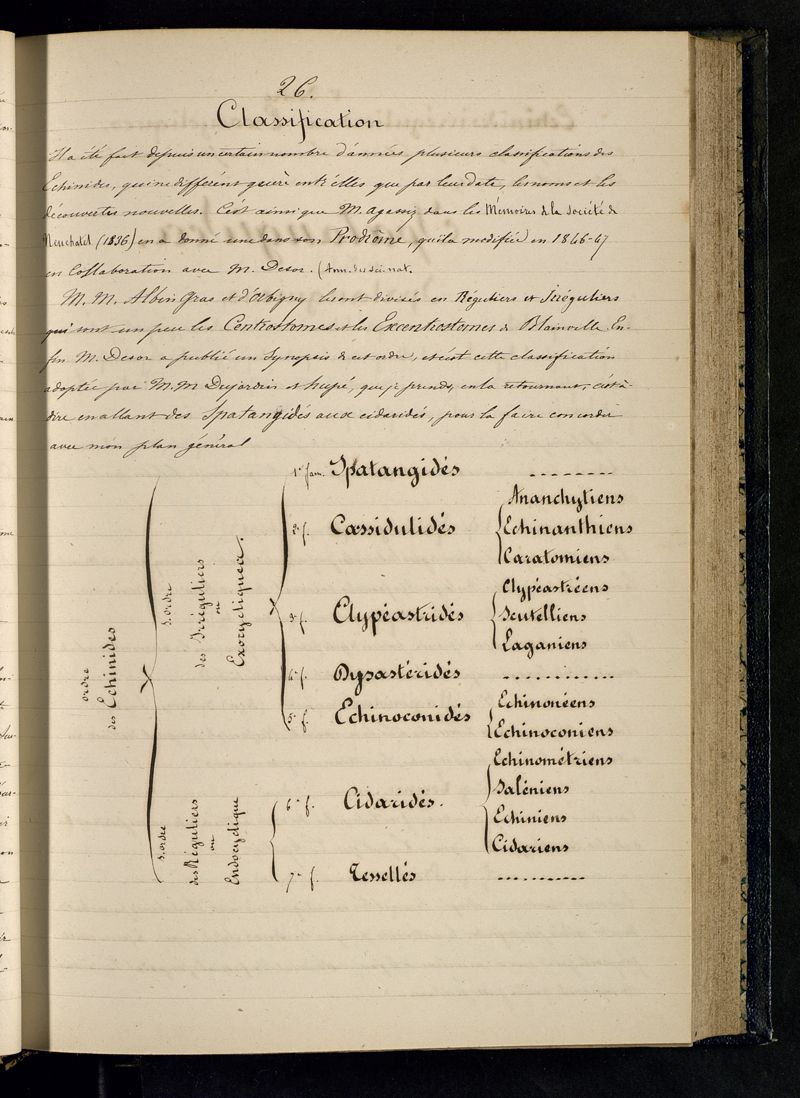 26.
Classification
Il a été fait depuis un certain nombre d'années plusieurs classifications des
Echinides, qui ne différent guère entr'elles que par leur date, les noms et les
découvertes nouvelles. C'est ainsi que M. Agassiz dans les Mémoires de la Société de
Neuchatel (1836) en a donné une dans son Prodrôme, qu'il a modifiée en 1846-47
en Collaboration avec M. Desor. (Ann. des sci. nat.
M. M. Albin Gras et d'Orbigny les ont divisés en Réguliers et Irréguliers
qui sont un peu les Centrostomes et les Excentrostomes de Blainville. En-
fin M. Desor a publié un Synopsis de cet ordre, et c'est cette classification
adoptée par M. M Dujardin et hupé, que je prends, en la retournant, c'est à-
dire en allant des Spatangidés aux cidaridés, pour la faire concorder
avec mon plan général
ordre
des Echinides
s. ordre
des Irréguliers
ou
Exocycliques.
1re fam. Spatangidés
2e f. Cassidulidés
Ananchytiens
Echinanthiens
Caratomiens
3e f. Clypéastridés
Clypéastréens
Scutelliens
Laganiens
4e f. Dysastéridés
5e f. Echinoconidés
Echinonéens
Echinoconiens
s. ordre
des Réguliers
ou
Endocyclique
6e f. Cidaridés.
Echinométriens
Saléniens
Echiniens
Cidariens
7e f. Tessellés